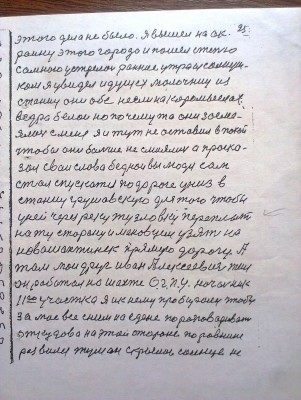 35.
этого дела не было. Я вышел на ок-
раину этого города и пошел степью
было раннее утро
ком я увидел идущих молочниц из
станиц они обе несли на коромыслах
ведра белои но почему та они
ялис с меня я и тут не оставил в покои
чтобы они больше не смиялис и прока-
зал сваи слова бедныи вы люди сам
стал спускатся подороге униз в
станицу грушавскую для того чтобы
у ней через реку тузловку переплыт
на ту сторону и
новашахтинск прямую дорогу. А
там мои друг иван Алексеевич жил
он работал на шахте О.Г.П.У. началник
11го участка я и к нему пробираюс чтобы
за мое все с ним на едене поразговариват
отсудова на этой стороне по равнине
развили туман скрылос солнце не